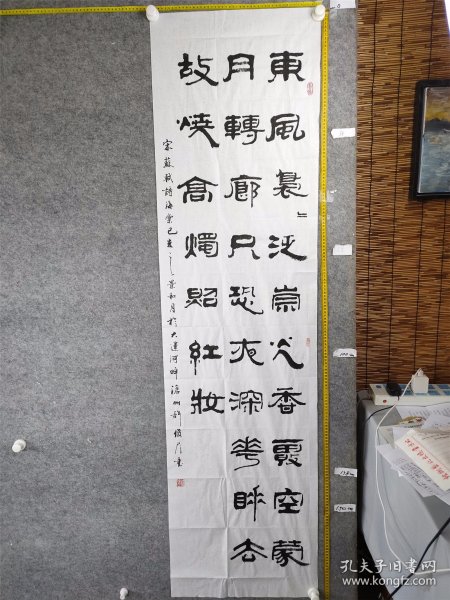 東風裊〻泛崇光香霧空蒙
月轉廊只恐夜深花睡去
故燒高燭照紅妝
宋蘇軾詩海棠己亥 景和月於大運河畔滄州 書
孔夫子旧书网
www.kongfz.com